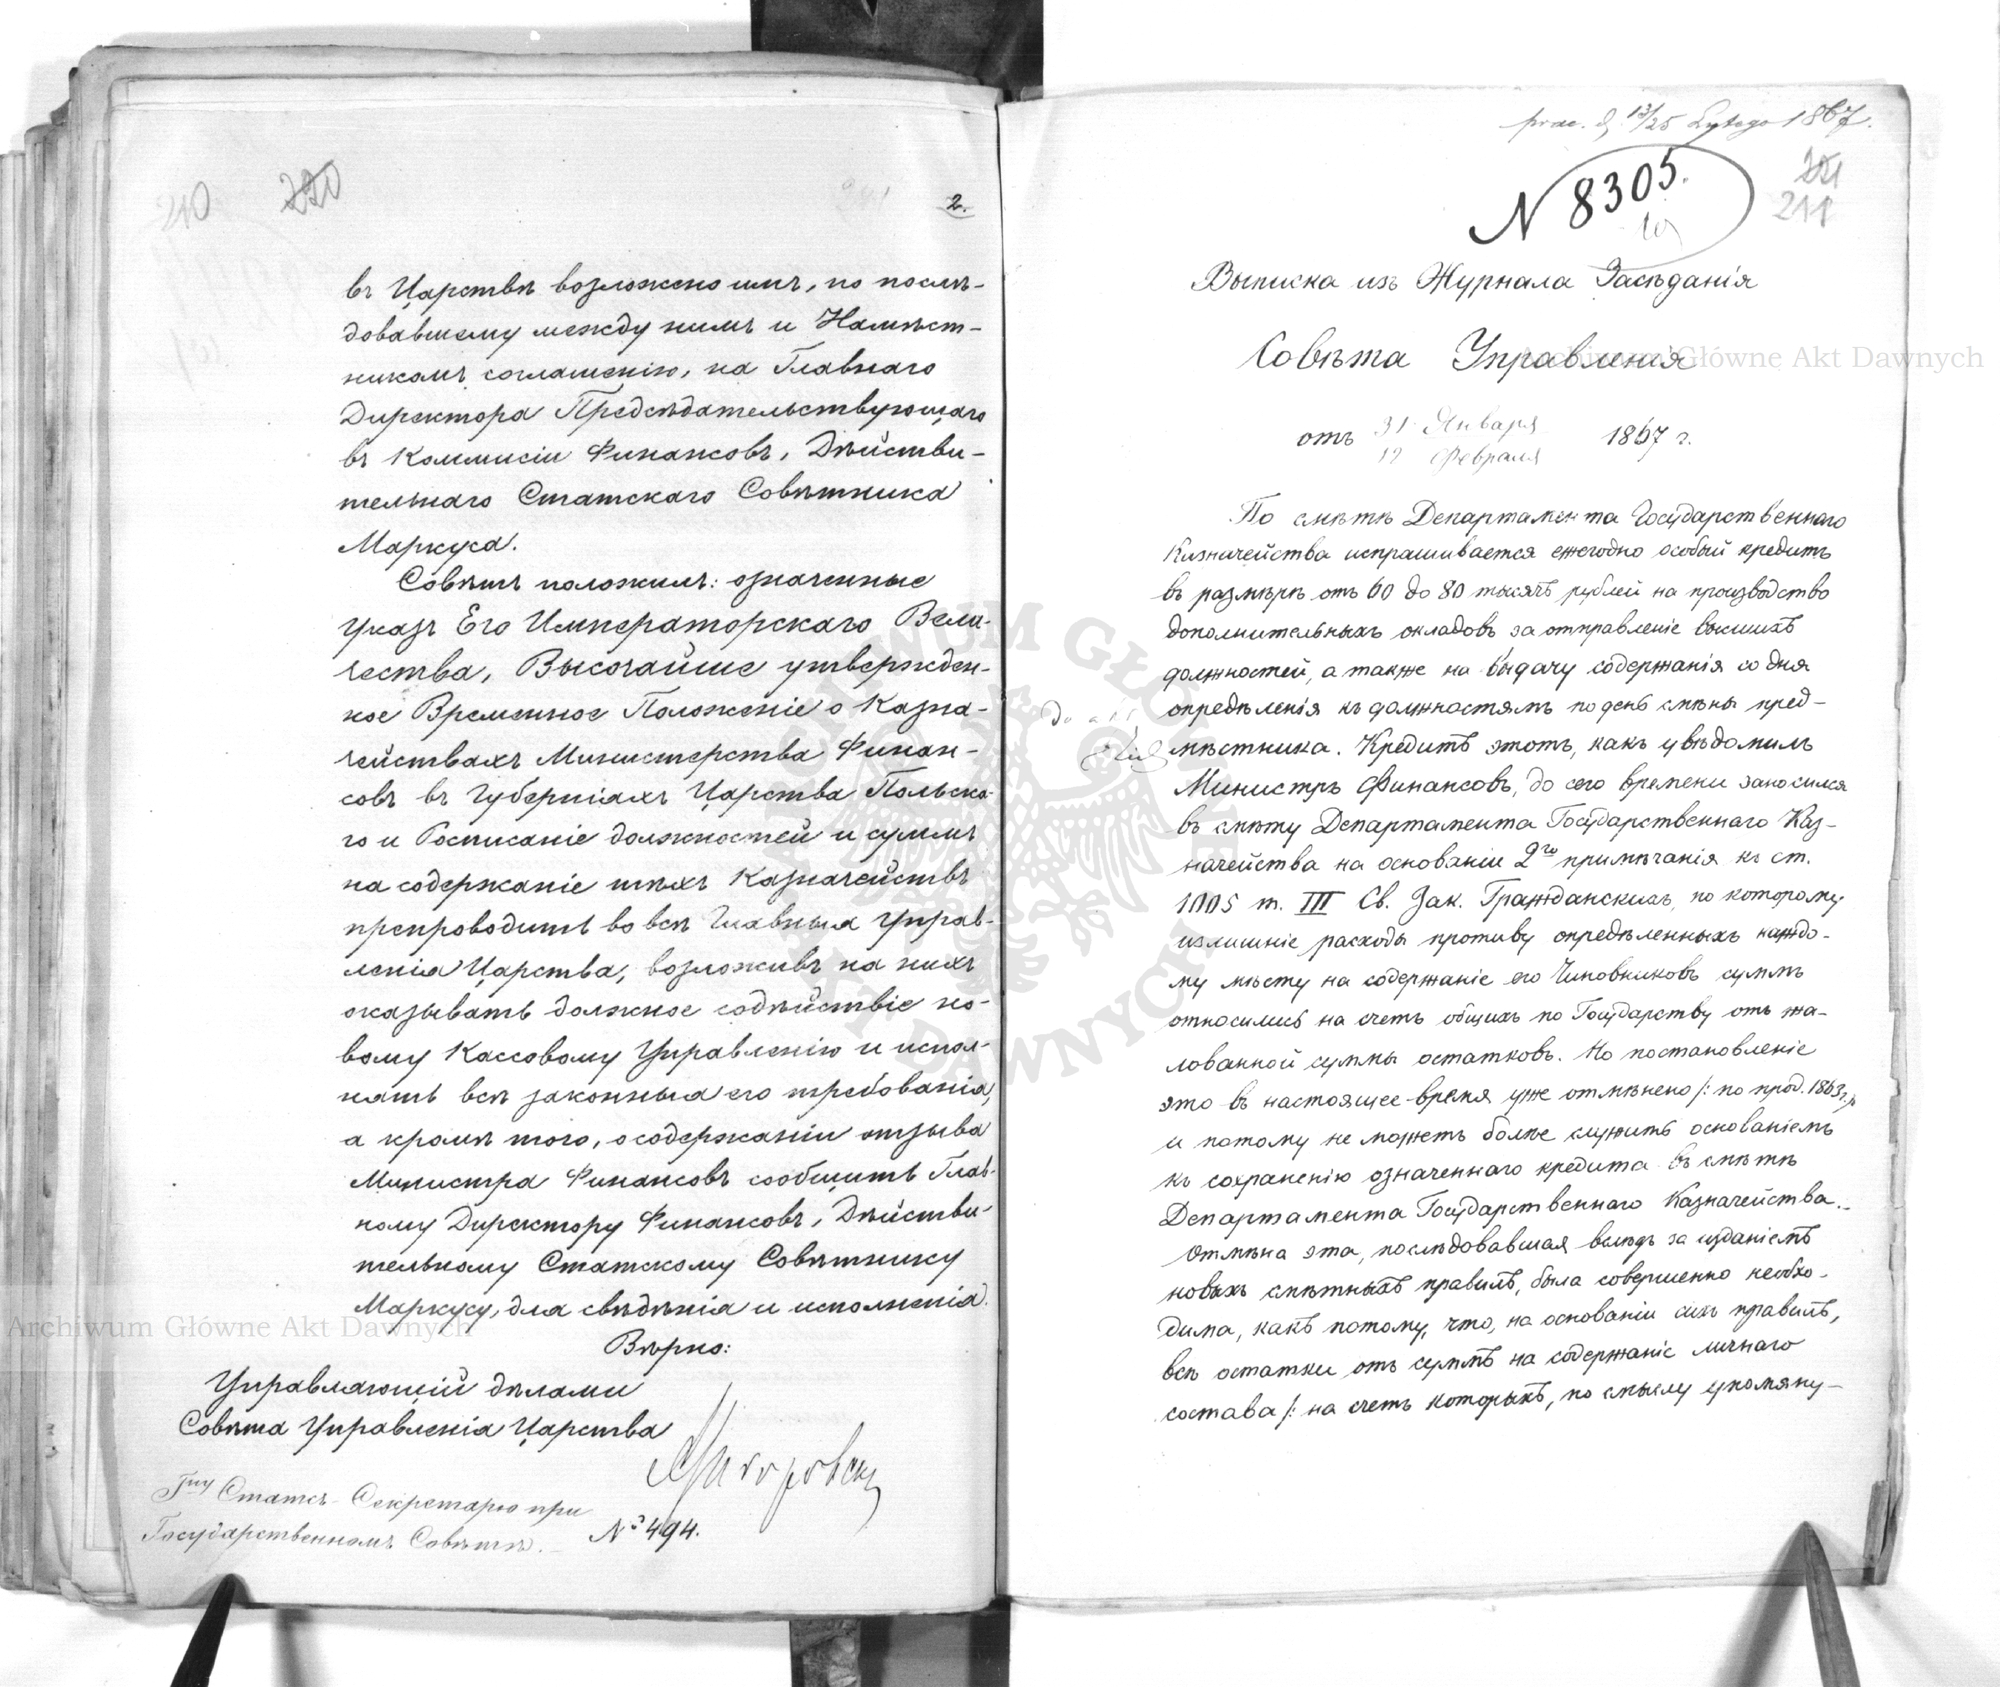 210 220
2.
въ Царствѣ возложено имъ, по послѣ-
довавшему между нимъ и Намѣст-
никомъ соглашенію, на Главнаго
Директора Предсѣдательствующаго
въ Коммисіи Финансовъ, Дѣйстви-
тельнаго Статскаго Совѣтника
Маркуса.
Совѣтъ положилъ: означенные
указъ Его Императорскаго Вели-
чества, Высочайше утвержден-
ное Временное Положеніе о Казна-
чействахъ Министерства Финан-
совъ въ Губерніяхъ Царства Польска-
го и Росписаніе должностей и суммъ
на содержаніе тѣхъ Казначействъ
препроводить во всѣ Главныя Управ-
ленія Царства, возложивъ на нихъ
оказывать должное содѣйствіе но-
вому Кассовому Управленію и испол-
нять всѣ законныя его требованія,
а кромѣ того, о содержаніи отзыва
Министра Финансовъ сообщить Глав-
ному Директору Финансовъ, Дѣйстви-
тельному Статскому Совѣтнику
Маркусу, для свѣдѣнія и исполненія.
Вѣрно:
Управляющій дѣлами
Совѣта Управленія Царства
Гну Статсъ-Секретарю при
Государственномъ Совѣтѣ.
№ 494.
prac. d. 13/25 Lutego 1867.
N 8305.
221
211
Выписка изъ Журнала Засѣданія
Совѣта Управленія
отъ 31 Января 1867 г.
12 Февраля
По смѣтѣ Департамента Государственнаго
Казначейства испрашивается ежегодно особый кредитъ
въ размѣрѣ отъ 60 до 80 тысячъ рублей на производство
дополнительныхъ окладовъ за отправленіе высшихъ
должностей, а также на выдачу содержанія со дня
опредѣленія къ должностямъ по день смѣны пред-
мѣстника. Кредитъ этотъ, какъ увѣдомилъ
Министръ Финансовъ, до сего времени заносился
въ смѣту Департамента Государственнаго Каз-
начейства на основаніи 2го примѣчанія къ ст.
1005 т. III Св. Зак. Гражданскихъ, по которому
излишніе расходы противу опредѣленныхъ каждо-
му мѣсту на содержаніе его Чиновниковъ суммъ
относились на счетъ общихъ по Государству отъ жа-
лованной суммы остатковъ. Но постановленіе
это въ настоящее время уже отмѣнено /: по прод. 1863 г. :/
и потому не можетъ болѣе служить основаніемъ
къ сохраненію означеннаго кредита въ смѣтѣ
Департамента Государственнаго Казначейства.
Отмѣна эта, послѣдовавшая вслѣдъ за изданіемъ
новыхъ смѣтныхъ правилъ, была совершенно необхо-
дима, какъ потому, что, на основаніи сихъ правилъ,
всѣ остатки отъ суммъ на содержаніе личнаго
состава /: на счетъ которыхъ, по смыслу упомяну-
Archiwum Główne Akt Dawnych
Archiwum Główne Akt Dawnych
ARCHIWUM GŁÓWNE AKT DAWNYCH